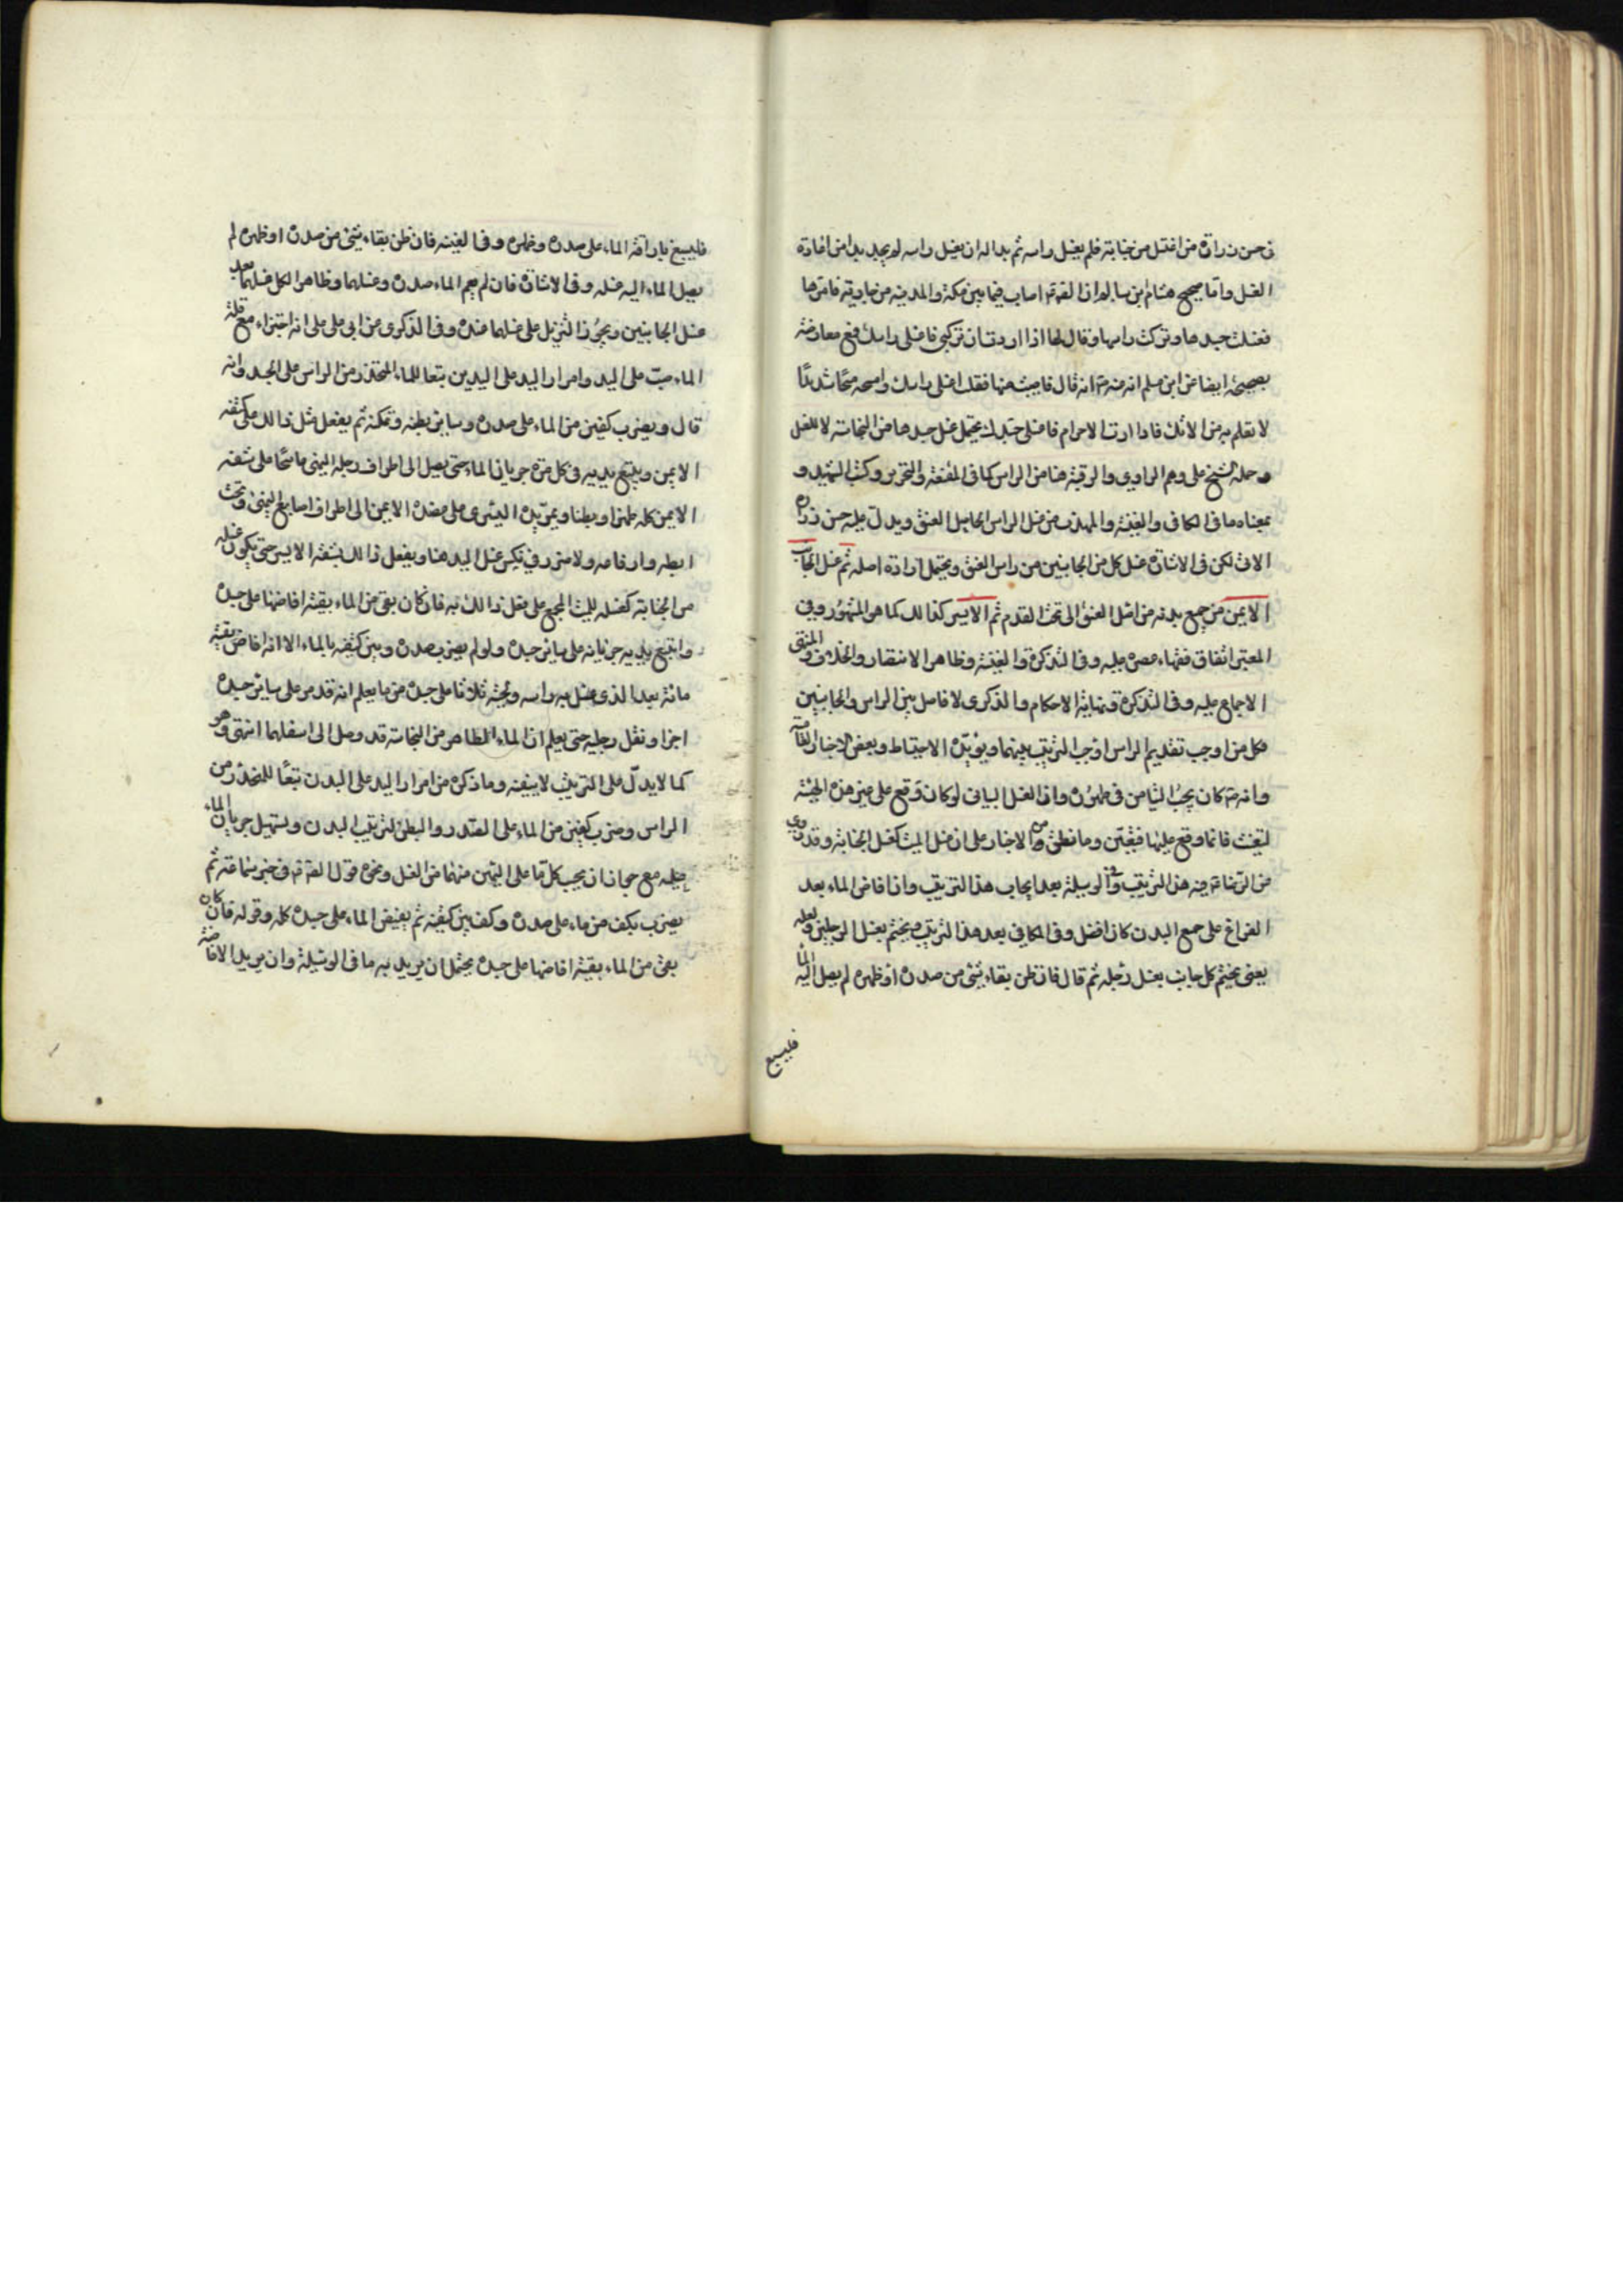 في حسن زرارة من اغتسل من جنابة فلم يغسل راسه ثم بدا له ان يغسل راسه لم يجد بدا من اعادة
الغسل واما صحيح هشام بن سالم ان الصادق ع اصاب فيما بين مكة والمدينة من جاريته فامرها
فغسلت جسدها وتركت راسها وقال لها اذا اردت ان تركبي فاغسلي راسك فمع معارضته
بصحيحه ايضا عن ابن مسلم انه ع قال فاصبت منها فقلت اغسلي راسك وامسحيه مسحا شديدا
لا تعلم به مولاتك فاذا اردت الاحرام فاغسلي جسدك يحتمل غسل جسدها من النجاسة لا للغسل
وحمله الشيخ على وهم الراوي والرقبة هنا من الراس كما في المقنعة والتحرير وكتب الشهيد و
بمعناه ما في الكافي والغنية والمهذب من غسل الراس الى اصل العنق ويدل عليه حسن زرارة
الاتي لكن في الاشارة غسل كل من الجانبين من راس العنق ويحتمل ارادة اصله ثم غسل الجانب
الايمن من جميع بدنه من اصل العنق الى تحت القدم ثم الايسر كذالك كما هو المشهور وفي
المعتبر اتفاق فقهاء عصره عليه وفي التذكرة والغنية وظاهر الانتصار والخلاف والمنتهى
الاجماع عليه وفي التذكرة ونهاية الاحكام والذكرى لا فاصل بين الراس والجانبين
فكل من اوجب تقديم الراس اوجب الترتيب بينهما ويؤيده الاحتياط وبعض الاخبار العامية
وانه ص كان يحب التيامن في طهوره وان الغسل البياني لو كان وقع على غير هذه الهيئة
لتعينت فانما وقع عليها فتتعين وما نطق من الاخبار على ان غسل الميت كغسل الجنابة وقد روي
عن الرضا ع فيه هذا الترتيب وفي الوسيلة بعد ايجاب هذا الترتيب وان افاض الماء بعد
الفراغ على جميع البدن كان افضل وفي الكافي بعد هذا الترتيب ويختم بغسل الرجلين ولعله
يعني يختم كل جانب بغسل رجله ثم قال فان ظن بقاء شئ من صدره او ظهره لم يصل اليه الماء
فليسبغ
فليسبغ باراقة الماء على صدره وظهره وفي الغنية فان ظن بقاء شئ من صدره او ظهره لم
يصل الماء اليه غسله وفي الاشارة فان لم يعم الماء صدره وغسلهما وظاهر الكل غسلهما بعد
غسل الجانبين ويجوز التنزيل على غسلهما عنده وفي الذكرى عن ابي علي على انه اجتزاء مع قلة
الماء صب على اليد وامرار اليد على اليدين تبعا للماء المنحدر من الراس على الجسد وانه
قال ويضرب كفين من الماء على صدره وساير بطنه وعكنه ثم يفعل مثل ذالك على كتفه
الايمن ويتبع يديه في كل مرة جريان الماء حتى يصل الى اطراف رجله اليمنى ماسحا على شقه
الايمن كله ظهرا وبطنا ويمر يده اليسرى على عضده الايمن الى اطراف اصابع اليمنى وتحت
ابطه وارفاعه ولا ضرر في نكس غسل اليد هنا ويفعل ذالك بشقه الايسر حتى يكون غسله
من الجنابة كغسله للميت المجمع على فعل ذالك به فان كان بقي من الماء بقية افاضها على جسده
واتبع يديه جريانه على ساير جسده ولو لم يضرب صدره وبين كتفيه بالماء الا انه افاض بقية
مائه بعد الذي غسل به راسه ولحيته ثلاثا على جسده من ما يعلم انه قد مر على ساير جسده
اجزا ونقل رجليه حتى يعلم ان الماء الطاهر من النجاسة قد وصل الى اسفلهما انتهى وهو
كما لا يدل على الترتيب لا ينفيه وما ذكره من امرار اليد على البدن تبعا للمنحدر من
الراس وضرب كفين من الماء على الصدر والبطن لترتيب البدن ولتسهيل جريان الماء
عليه مع جواز ان يجب كل ما على اليمين منهما من الغسل ونحوه قول الصادق ع في خبر سماعة ثم
يضرب بكف من ماء على صدره وكف بين كتفيه ثم يفيض الماء على جسده كله وقوله فان كان
بقي من الماء بقية افاضها على جسده يحتمل ان يريد به ما في الوسيلة وان يريد الافاضة